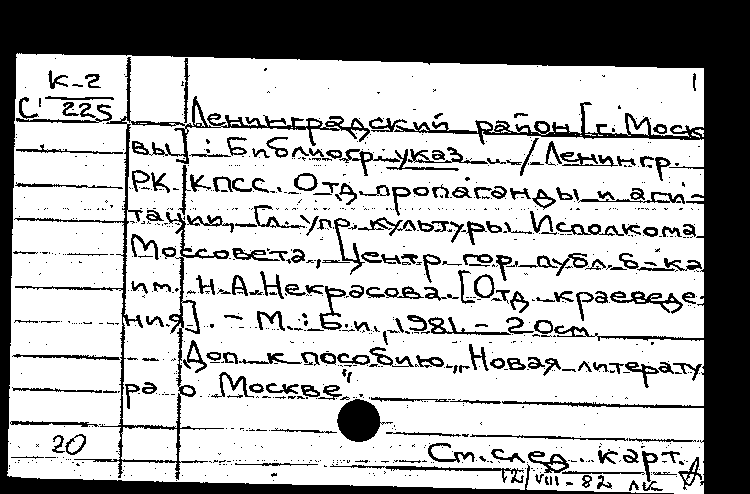 К-2
С 225
1
Ленинградский район [г. Моск
вы] : Библиогр. указ ... / Ленингр.
РК КПСС. Отд. пропаганды и аги-
тации, Гл. упр. культуры Исполкома
Моссовета, Центр. гор. публ. б-ка
им. Н.А.Некрасова. [Отд. краеведе-
ния]. - М. : Б.и., 1981. - 20см.
Доп. к пособию „Новая литерату
ра о Москве".
20
Ст.след. карт.
12/VIII-82 лк